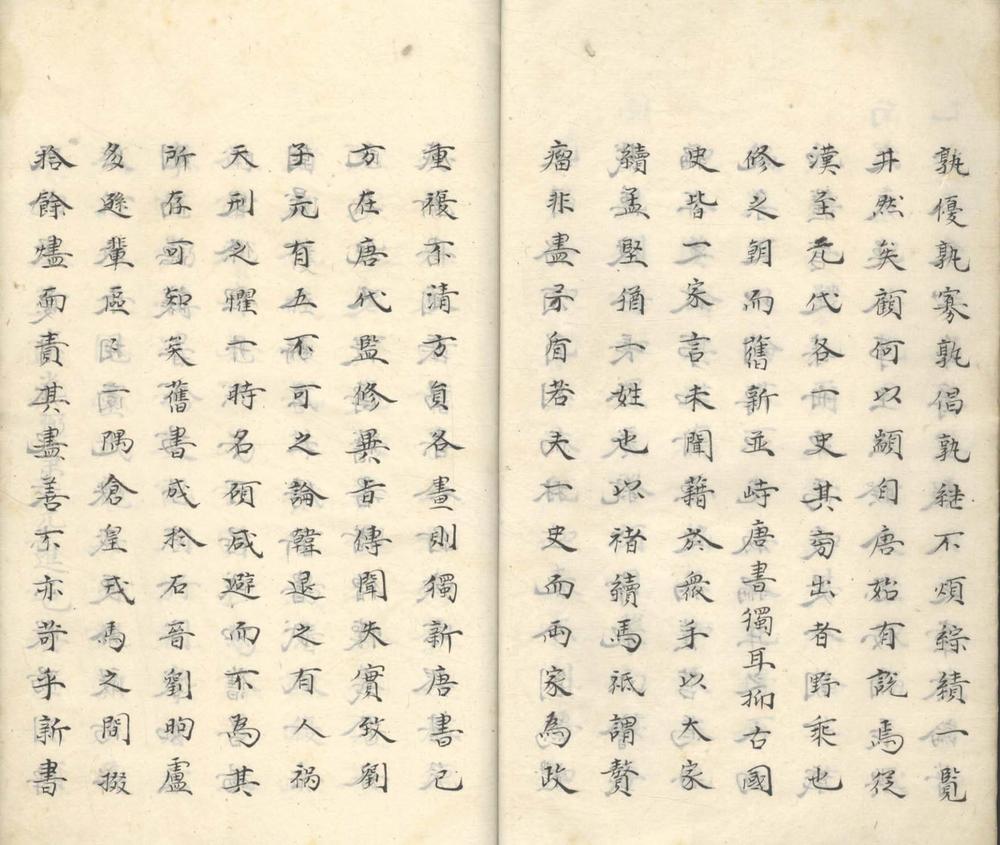 孰優孰寡孰倡孰継不煩綜績一覧
井然矣顧何以顓自唐始有說焉従
漢至元代各一史其旁出者野乘也
修之朝而舊新並峙唐書獨耳抑古國
史皆一家言未聞藉於衆手以太家
續孟堅猶一姓也以褚續馬祗謂贅
瘤非盡矛盾若夫一史而兩家為政
重複不清方員各畫則獨新唐書已
方在唐代監修異旨傳聞失實致劉
子元有五不可之論韓退之有人禍
天刑之懼一時名碩咸避而不為其
所存可知矣舊書成於石晉劉昫盧
多遜輩區〻一隅倉皇戎馬之間掇
拾餘燼而責其盡善不亦苛乎新書